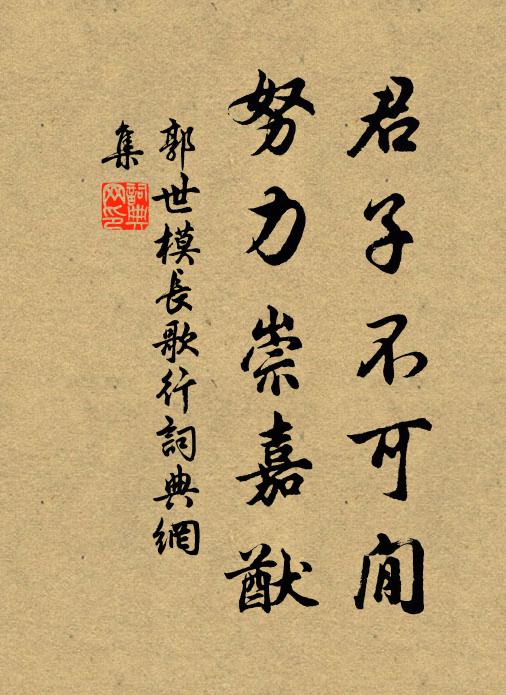 君子不可閒
努力崇嘉猷
郭世模長歌行詞典網
集
詞典
网印